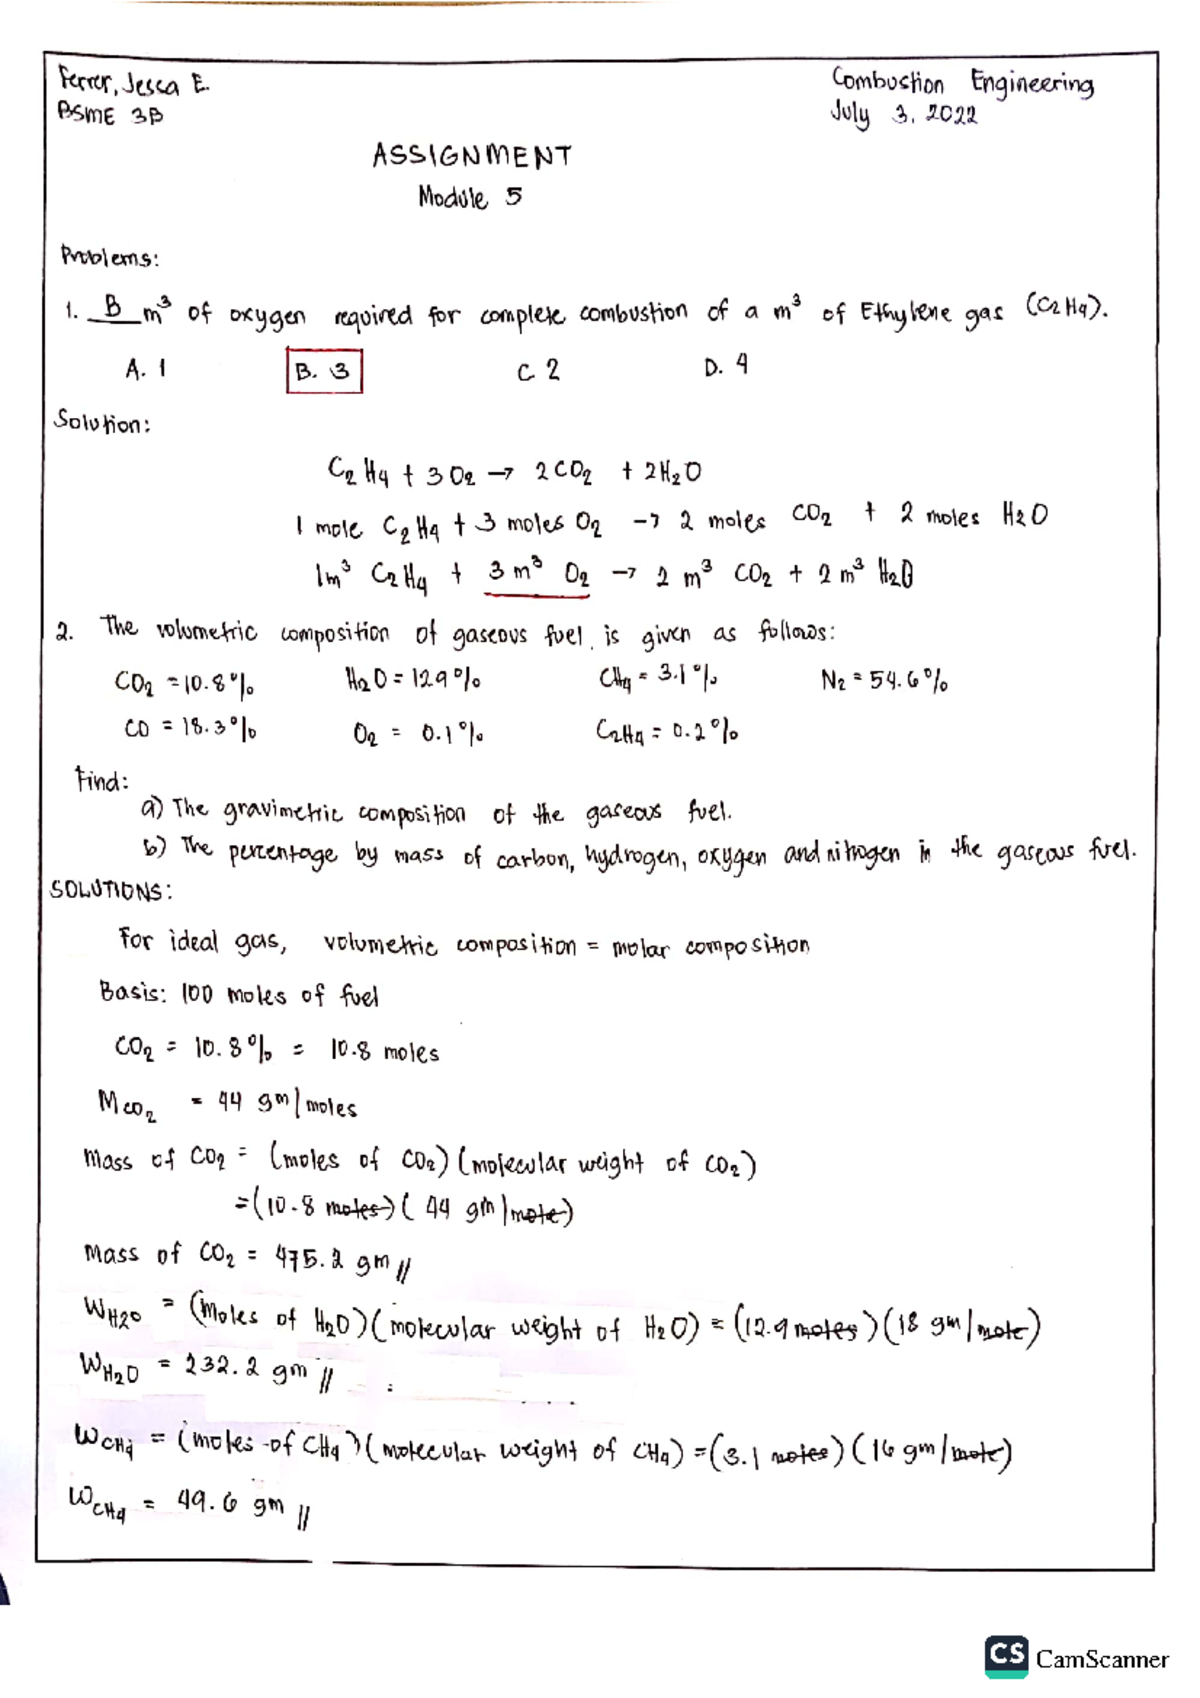 Ferrer, Jessa E.
Combustion Engineering
BSME 3B
July 3, 2022
ASSIGNMENT
Module 5
Problems:
1. B m³ of oxygen required for complete combustion of a m³ of Ethylene gas (C₂H₄).
A. 1 B. 3 C. 2 D. 4
Solution:
C₂H₄ + 3O₂ → 2CO₂ + 2H₂O
1 mole C₂H₄ + 3 moles O₂ → 2 moles CO₂ + 2 moles H₂O
1m³ C₂H₄ + 3 m³ O₂ → 2 m³ CO₂ + 2 m³ H₂O
2. The volumetric composition of gaseous fuel is given as follows:
CO₂ = 10.8% H₂O = 12.9% CH₄ = 3.1% N₂ = 54.6%
CO = 18.3% O₂ = 0.1% C₂H₄ = 0.2%
Find:
a) The gravimetric composition of the gaseous fuel.
b) The percentage by mass of carbon, hydrogen, oxygen and nitrogen in the gaseous fuel.
SOLUTIONS:
For ideal gas, volumetric composition = molar composition
Basis: 100 moles of fuel
CO₂ = 10.8% = 10.8 moles
Mco₂ = 44 gm/moles
Mass of CO₂ = (moles of CO₂)(molecular weight of CO₂)
= (10.8 moles)(44 gm/mole)
Mass of CO₂ = 475.2 gm //
WH₂O = (Moles of H₂O)(molecular weight of H₂O) = (12.9 moles)(18 gm/mole)
WH₂O = 232.2 gm //
WCH₄ = (moles of CH₄)(molecular weight of CH₄) = (3.1 moles)(16 gm/mole)
WCH₄ = 49.6 gm //
CS CamScanner